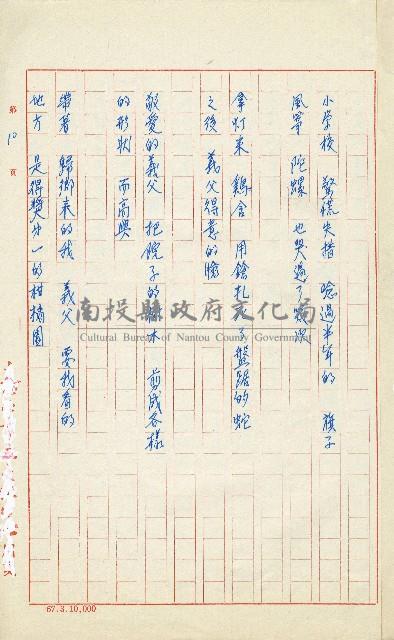 小学校 驚慌失措 唸過半年的 旗子
風箏 陀螺 也哭過了
拿灯来 鷄舍 用鎗扎 盤踞的蛇
之後 義父得意的臉
敬愛的義父 把院子的 木 剪成各樣
的形狀 而高興
帶著 歸鄉来的我 義父 要我看的
地方 是得獎 的柑橘園
第 10 頁
南投縣政府文化局
Cultural Bureau of Nantou County Government
67.3.10,000